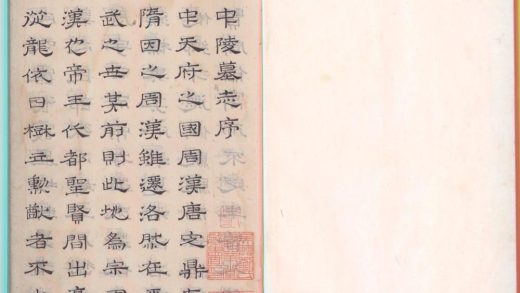 中陵墓志序
中天府之國周漢唐定鼎
隋因之周漢雖遷洛肰在
武之世其前則此地為宗
漢以帝王代都聖賢間出
從龍依日樹立勳猷者不